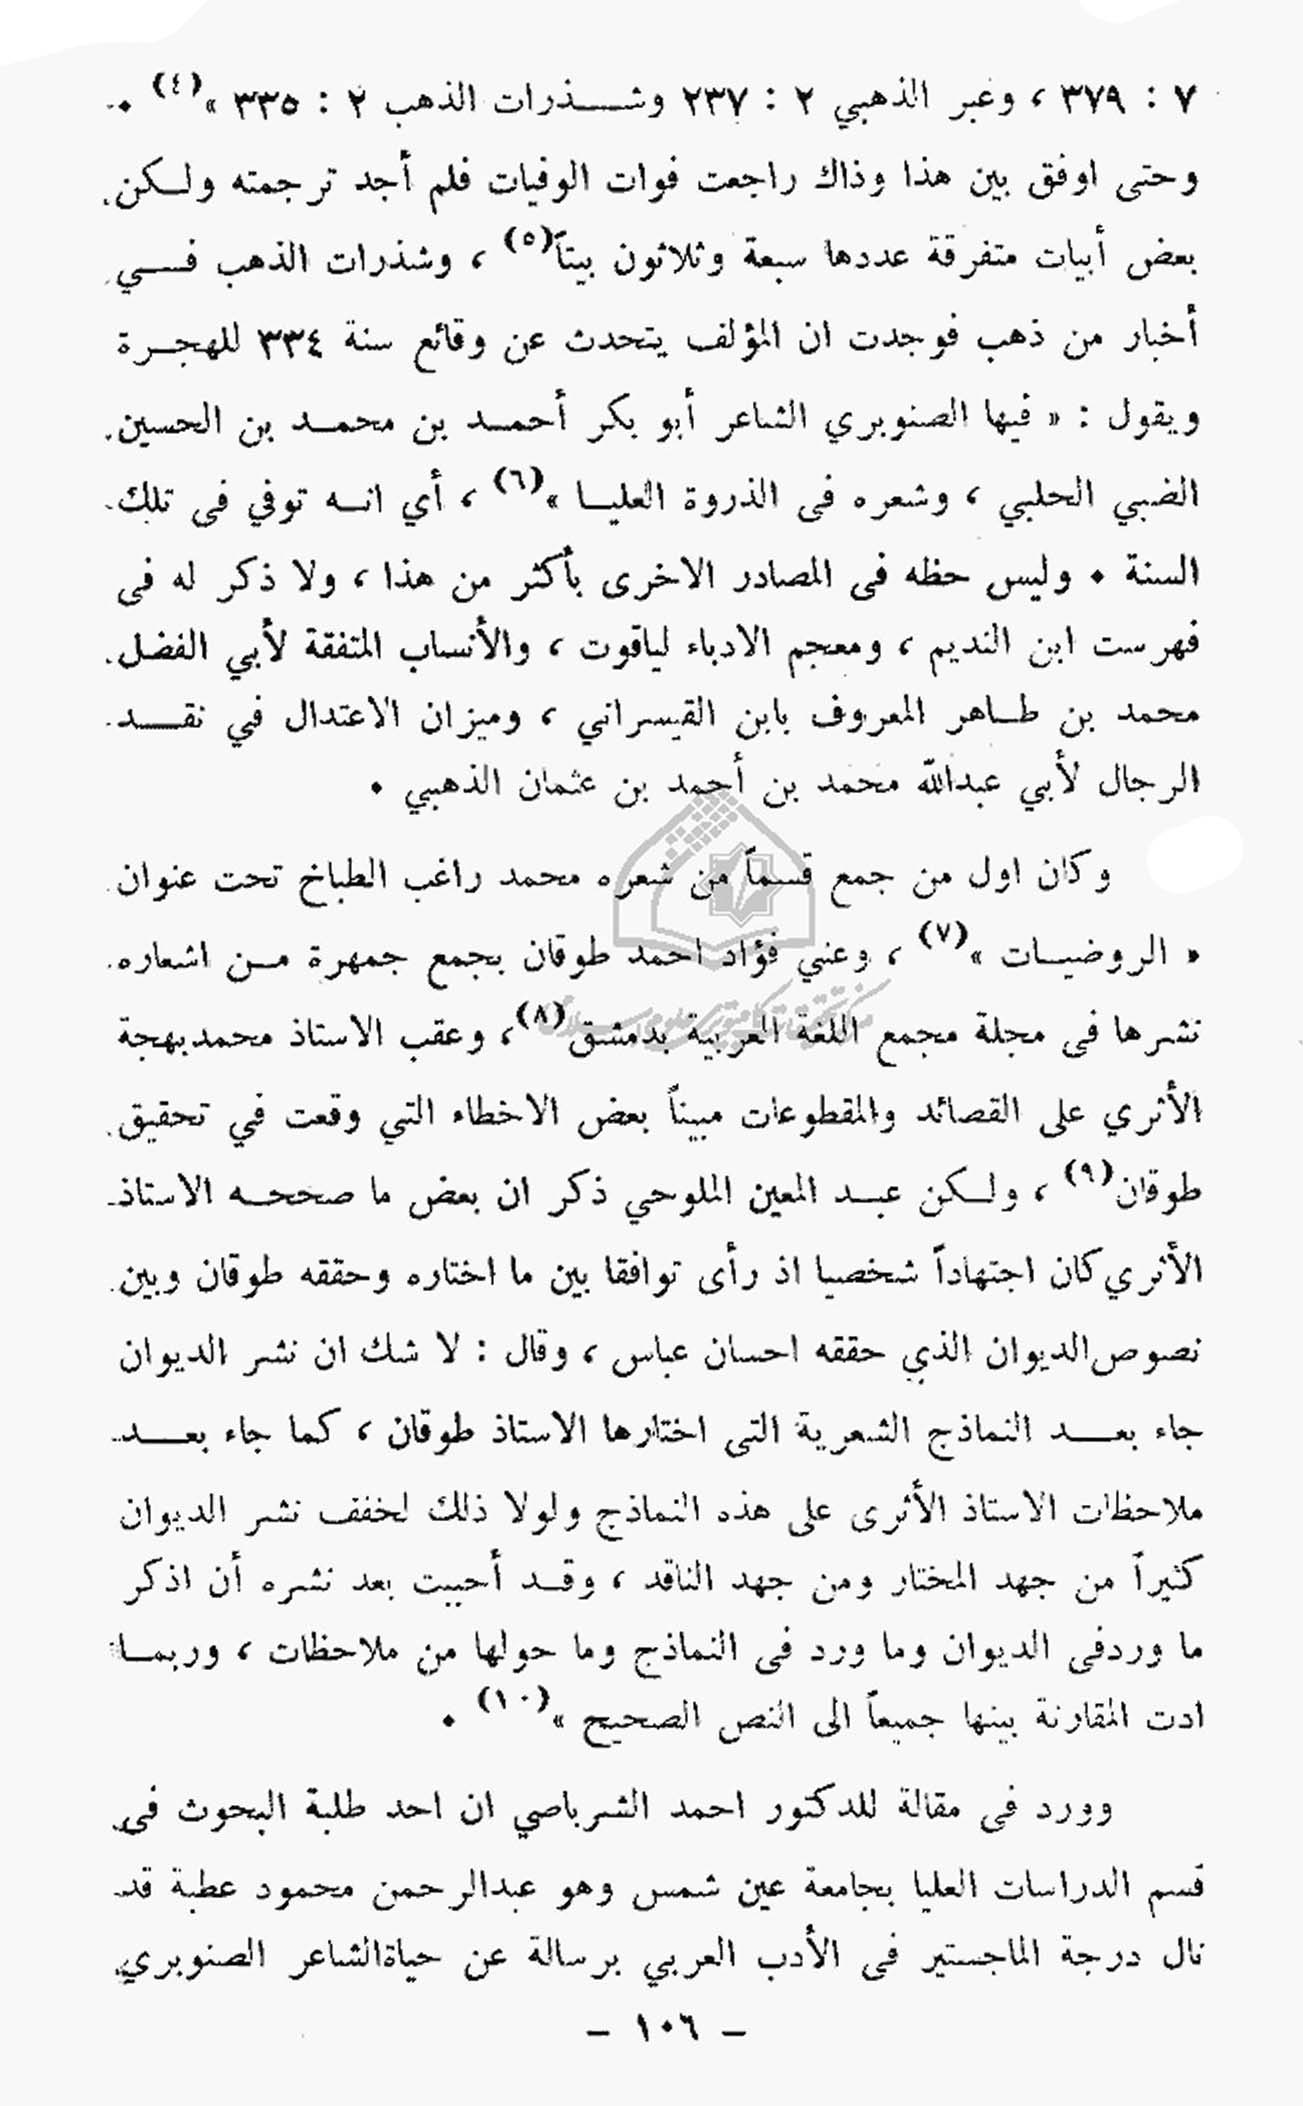 ٧ : ٣٧٩ ، وعبر الذهبي ٢ : ٢٣٧ وشذرات الذهب ٢ : ٣٣٥ »(٤) ٠
وحتى اوفق بين هذا وذاك راجعت فوات الوفيات فلم أجد ترجمته ولكن
بعض أبيات متفرقة عددها سبعة وثلاثون بيتاً(٥) ، وشذرات الذهب فــي
أخبار من ذهب فوجدت ان المؤلف يتحدث عن وقائع سنة ٣٣٤ للهجرة
ويقول : « فيها الصنوبري الشاعر أبو بكر أحمد بن محمد بن الحسين
الضبي الحلبي ، وشعره فى الذروة العليا »(٦) ، أي انه توفي فى تلك
السنة ٠ وليس حظه فى المصادر الاخرى بأكثر من هذا ، ولا ذكر له فى
فهرست ابن النديم ، ومعجم الادباء لياقوت ، والأنساب المتفقة لأبي الفضل
محمد بن طاهر المعروف بابن القيسراني ، وميزان الاعتدال في نقد
الرجال لأبي عبدالله محمد بن أحمد بن عثمان الذهبي ٠
وكان اول من جمع قسماً من شعره محمد راغب الطباخ تحت عنوان
« الروضيات »(٧) ، وعني فؤاد احمد طوقان بجمع جمهرة من اشعاره
نشرها فى مجلة مجمع اللغة العربية بدمشق(٨) ، وعقب الاستاذ محمدبهجة
الأثري على القصائد والمقطوعات مبيناً بعض الاخطاء التي وقعت في تحقيق
طوقان(٩) ، ولكن عبد المعين الملوحي ذكر ان بعض ما صححه الاستاذ
الأثري كان اجتهاداً شخصيا اذ رأى توافقا بين ما اختاره وحققه طوقان وبين
نصوص الديوان الذي حققه احسان عباس ، وقال : لا شك ان نشر الديوان
جاء بعد النماذج الشعرية التى اختارها الاستاذ طوقان ، كما جاء بعد
ملاحظات الاستاذ الأثرى على هذه النماذج ولولا ذلك لخفف نشر الديوان
كثيراً من جهد المختار ومن جهد الناقد ، وقد أحببت بعد نشره أن اذكر
ما وردفى الديوان وما ورد فى النماذج وما حولها من ملاحظات ، وربما
ادت المقارنة بينها جميعاً الى النص الصحيح »(١٠) ٠
وورد فى مقالة للدكتور احمد الشرباصي ان احد طلبة البحوث فى
قسم الدراسات العليا بجامعة عين شمس وهو عبدالرحمن محمود عطبة قد
نال درجة الماجستير فى الأدب العربي برسالة عن حياةالشاعر الصنوبري
– ١٠٦ –